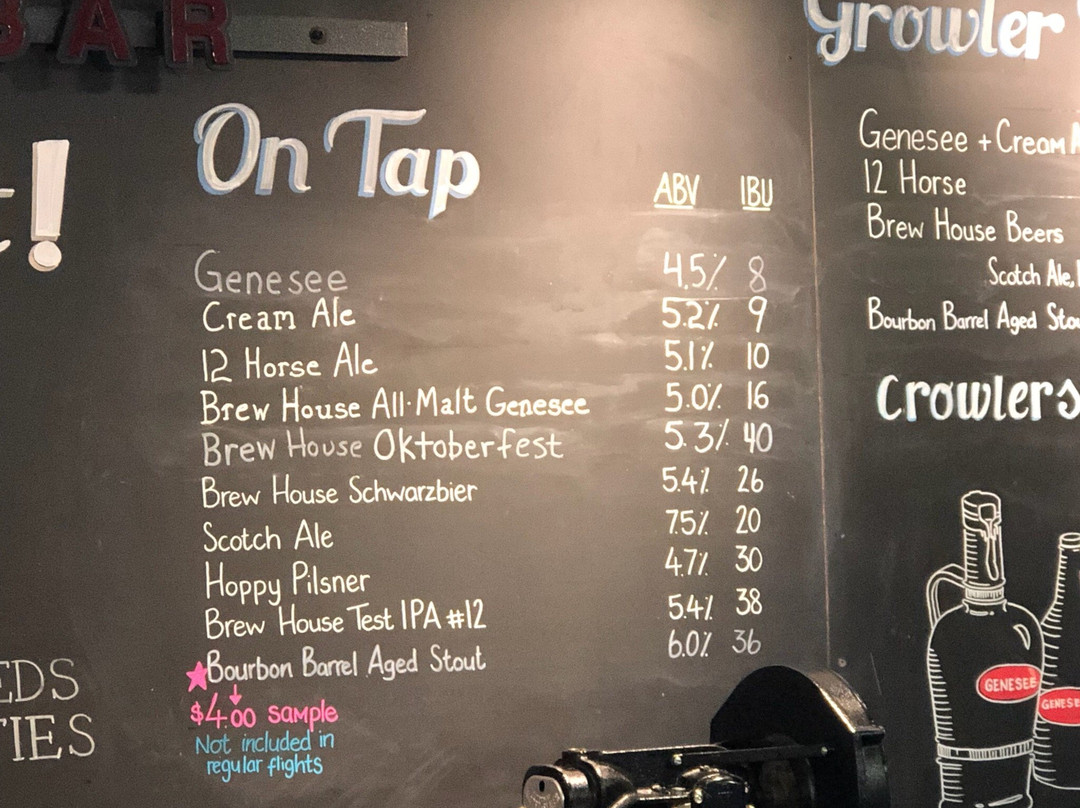 BAR
On Tap
ABV IBU
Genesee 4.5% 8
Cream Ale 5.2% 9
12 Horse Ale 5.1% 10
Brew House All·Malt Genesee 5.0% 16
Brew House Oktoberfest 5.3% 40
Brew House Schwarzbier 5.4% 26
Scotch Ale 7.5% 20
Hoppy Pilsner 4.7% 30
Brew House Test IPA #12 5.4% 38
Bourbon Barrel Aged Stout 6.0% 36
$4.00 sample
Not included in
regular flights
Growler
Genesee + Cream
12 Horse
Brew House Beers
Scotch Ale,
Bourbon Barrel Aged
Crowlers
GENESEE
GENESE
EDS
TIES